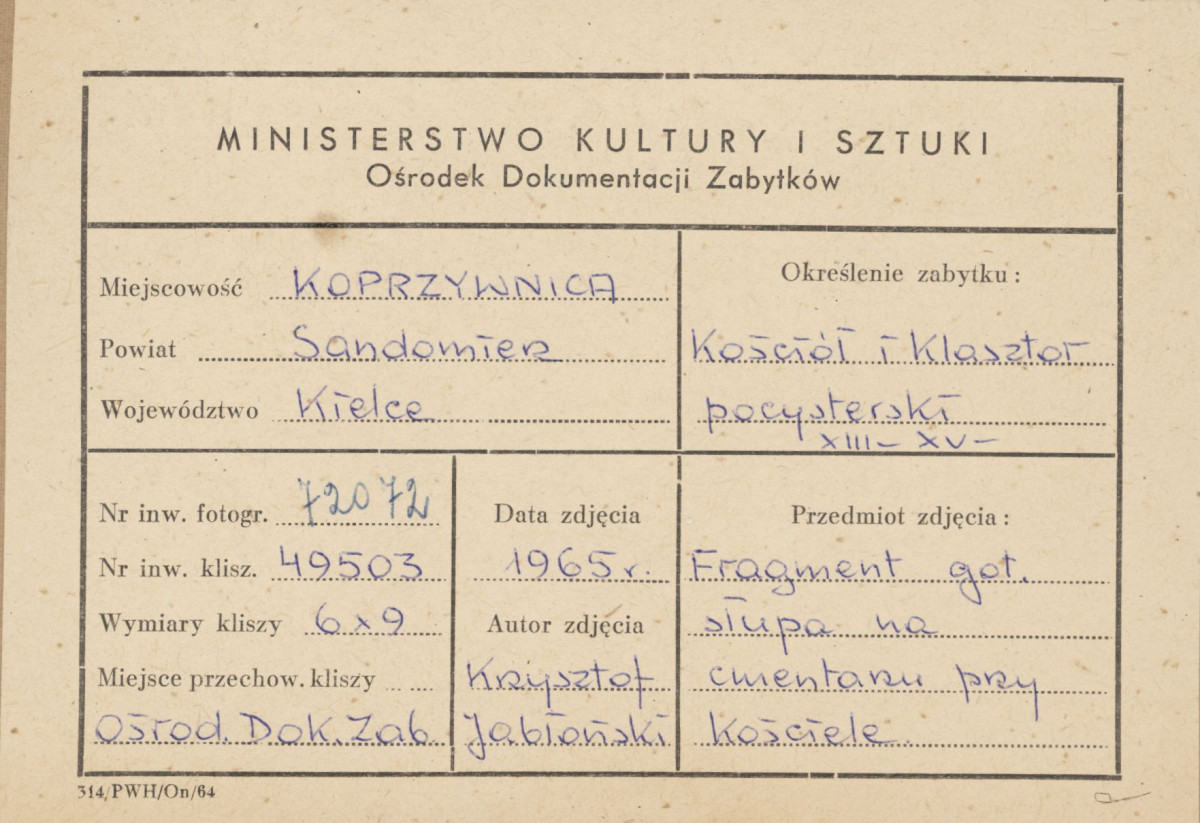 MINISTERSTWO KULTURY I SZTUKI
Ośrodek Dokumentacji Zabytków
Miejscowość KOPRZYWNICA
Powiat Sandomierz
Województwo Kielce
Określenie zabytku:
Kościół i Klasztor
pocysterski
XIII - XV -
Nr inw. fotogr. 72072
Nr inw. klisz. 49503
Wymiary kliszy 6x9
Miejsce przechow. kliszy
Ośrod. Dok. Zab.
Data zdjęcia
1965 r.
Autor zdjęcia
Krzysztof
Jabłoński
Przedmiot zdjęcia:
Fragment got.
słupa na
cmentarzu przy
Kościele.
314/PWH/On/64